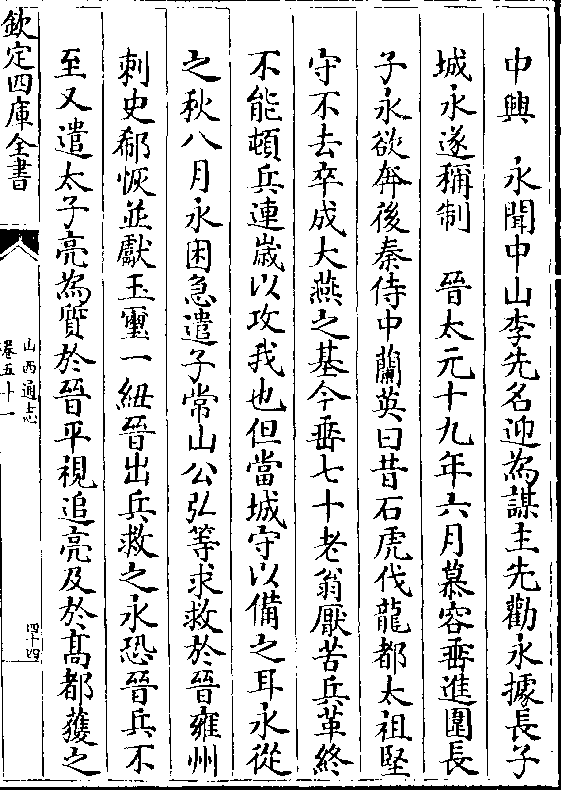 中興　永聞中山李先名迎為謀主先勸永據長子
城永遂稱制　晉太元十九年六月慕容垂進圍長
子永欲奔後秦侍中蘭英曰昔石虎伐龍都太祖堅
守不去卒成大燕之基今垂七十老翁厭苦兵革終
不能頓兵連歲以攻我也但當城守以備之耳永從
之秋八月永困急遣子常山公弘等求救於晉雍州
刺史郗恢並獻玉璽一紐晉出兵救之永恐晉兵不
至又遣太子亮為質於晉平視追亮及於髙都獲之
欽定四庫全書
山西通志
卷五十一
四十四